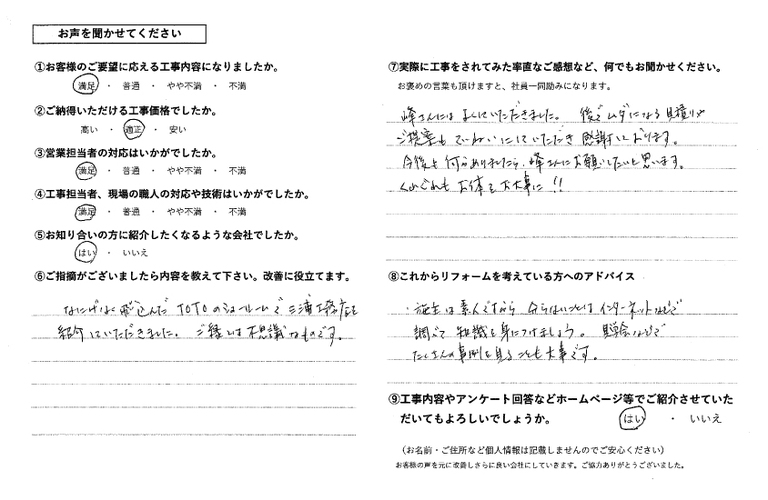 お声を聞かせてください
①お客様のご要望に応える工事内容になりましたか。
満足 ・ 普通 ・ やや不満 ・ 不満
②ご納得いただける工事価格でしたか。
高い ・ 適正 ・ 安い
③営業担当者の対応はいかがでしたか。
満足 ・ 普通 ・ やや不満 ・ 不満
④工事担当者、現場の職人の対応や技術はいかがでしたか。
満足 ・ 普通 ・ やや不満 ・ 不満
⑤お知り合いの方に紹介したくなるような会社でしたか。
はい ・ いいえ
⑥ご指摘がございましたら内容を教えて下さい。改善に役立てます。
なにげなく飛込んだTOTOのショールームで三浦工務店を
紹介していただきました。ご縁とは不思議なものです。
⑦実際に工事をされてみた率直なご感想など、何でもお聞かせください。
お褒めの言葉も頂けますと、社員一同励みになります。
峰さんにはよくしていただきました。後でムダになる見積りや
ご提案もていねいにしていただき感謝しております。
今後も何かありましたら、峰さんにお願いしたいと思います。
くれぐれもお体をお大事に!!
⑧これからリフォームを考えている方へのアドバイス
・施主は素人ですから分らないことはインターネットなどで
調べて知識を身につけましょう。見学会などで
たくさんの事例を見ることも大事です。
⑨工事内容やアンケート回答などホームページ等でご紹介させていた
だいてもよろしいでしょうか。 はい ・ いいえ
(お名前・ご住所など個人情報は記載しませんのでご安心ください)
お客様の声を元に改善しさらに良い会社にしていきます。ご協力ありがとうございました。